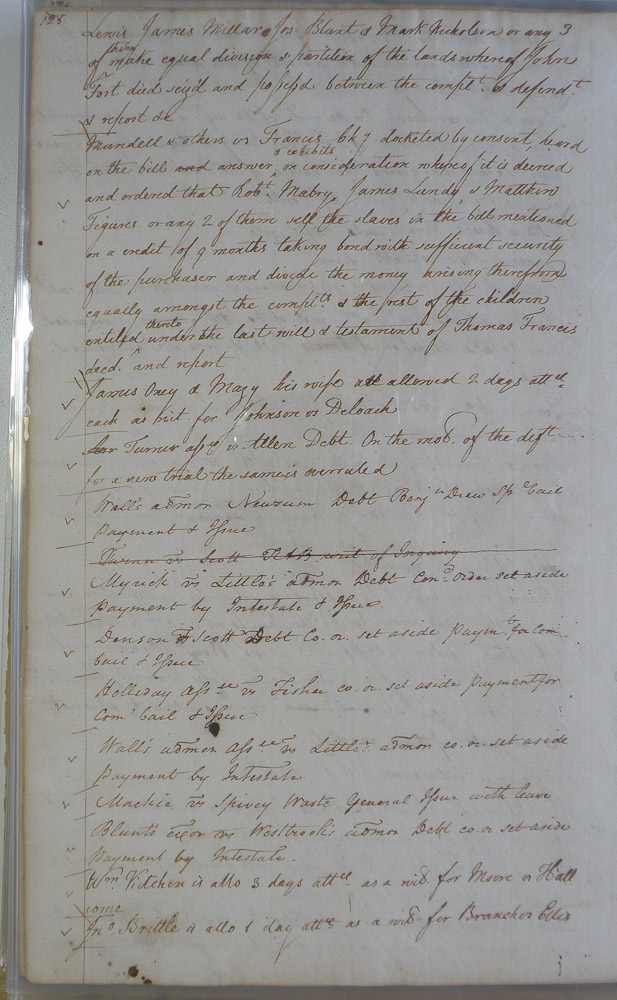 188
Lewis James Willar & Jos Blunt & Mark Nicholson or any 3
of them make equal division & partition of the lands whereof John
Fort died seiz'd and possess'd between the complt. & defendt.
& report &c
Mundell & others vs Francis Ch y docketed by consent, heard
on the bill and answer & exhibits, on consideration whereof it is decreed
and ordered that Robt. Mabry, James Lundy & Matthew
Figures or any 2 of them sell the slaves in the bill mentioned
on a credit of 9 months taking bond with sufficient security
of the purchaser and divide the money arising therefrom
equally amongst the complts & the rest of the children
entitled thereto under the last will & testament of Thomas Francis
deced. and report
James Oney & Mazy his wife all allowed 2 days attce
each as wit. for Johnson vs Deloach
Turner assee vs Allen Debt. On the mo. of the deft.
for a new trial the same is overruled
Wall's admor Newsum Debt Benjn Drew Sp. bail
Payment & Issue
Turner vs Scott T A B writ of Inquiry
Myrick vs Little's admor Debt Cond. order set aside
payment by Intestate & Issue
Denson vs Scott Debt Co. or. set aside paymt for Com.
bail & Issue
Holliday Assee vs Fisher co. or. set aside payment for
Com. bail & Issue
Wall's admor Assee vs Little's admor co. or. set aside
Payment by Intestate
Mackie vs Spivey Waste General Issue with leave
Blunt's exor vs Westbrook's admor Debt co. or set aside
Payment by Intestate.
Wm. Kitchen is allo 3 days attce as a wit. for Moore vs Hall
come
Jno. Brittle is allo 1 day attce as a wit for Branch vs Ellis